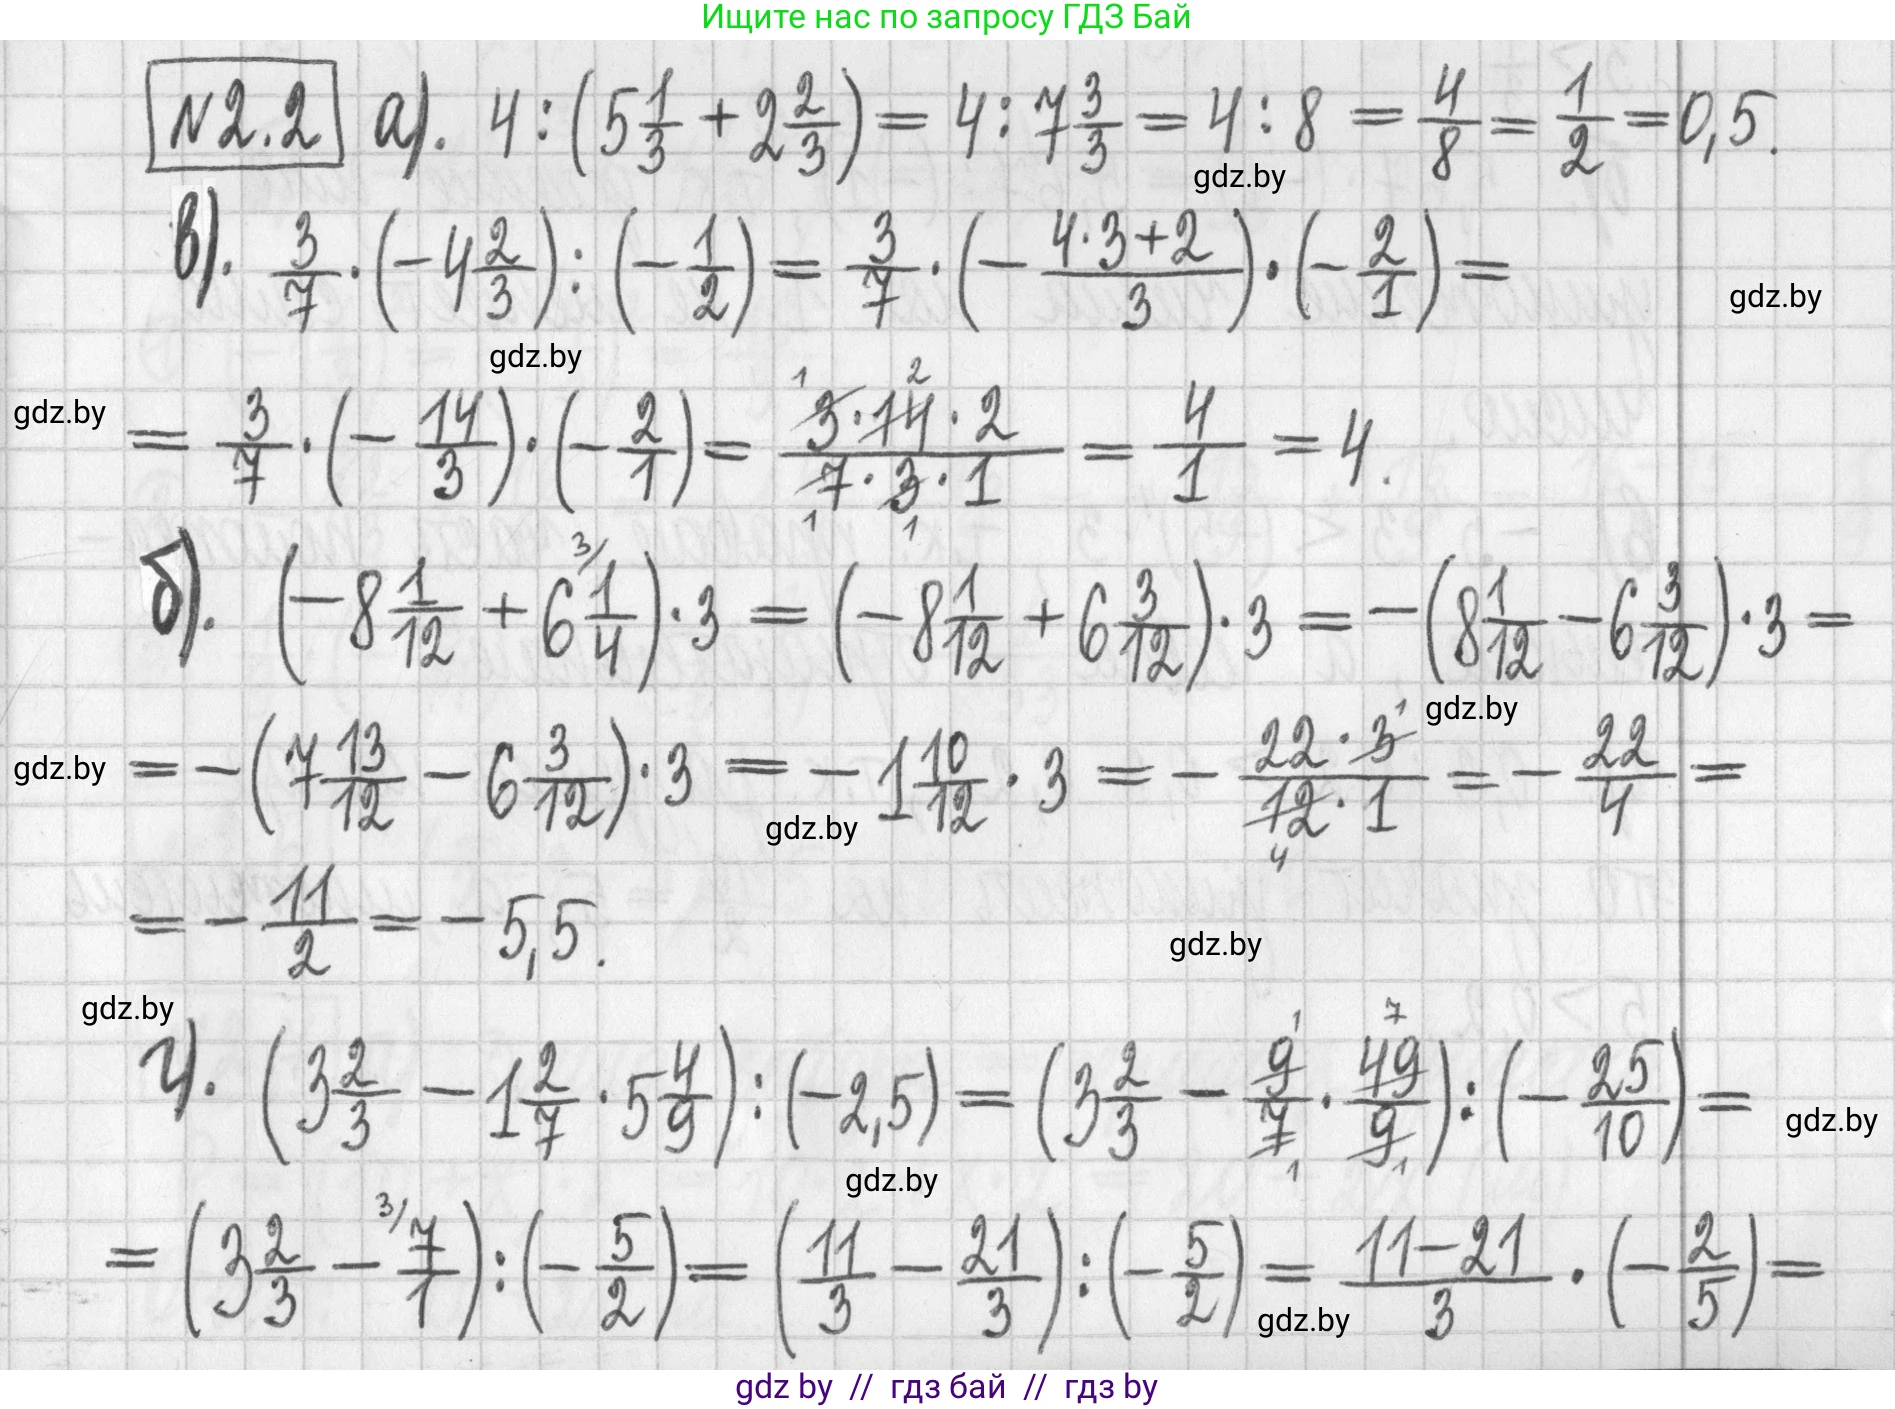 Ищите нас по запросу ГДЗ Бай
№2.2 а). 4 : (5 1/3 + 2 2/3) = 4 : 7 3/3 = 4 : 8 = 4/8 = 1/2 = 0,5.
gdz.by
в). 3/7 · (-4 2/3) : (-1/2) = 3/7 · (- (4·3+2)/3) · (-2/1) =
gdz.by
gdz.by
gdz.by
= 3/7 · (-14/3) · (-2/1) = (3·14·2)/(7·3·1) = 4/1 = 4.
б). (-8 1/12 + 6 1/4) · 3 = (-8 1/12 + 6 3/12) · 3 = -(8 1/12 - 6 3/12) · 3 =
gdz.by
gdz.by
= -(7 13/12 - 6 3/12) · 3 = -1 10/12 · 3 = - (22·3)/(12·1) = - 22/4 =
gdz.by
= - 11/2 = -5,5.
gdz.by
gdz.by
г). (3 2/3 - 1 2/7 · 5 4/9) : (-2,5) = (3 2/3 - 9/7 · 49/9) : (-25/10) =
gdz.by
gdz.by
= (3 2/3 - 7/1) : (-5/2) = (11/3 - 21/3) : (-5/2) = (11-21)/3 · (-2/5) =
gdz.by
gdz by // гдз бай // гдз by